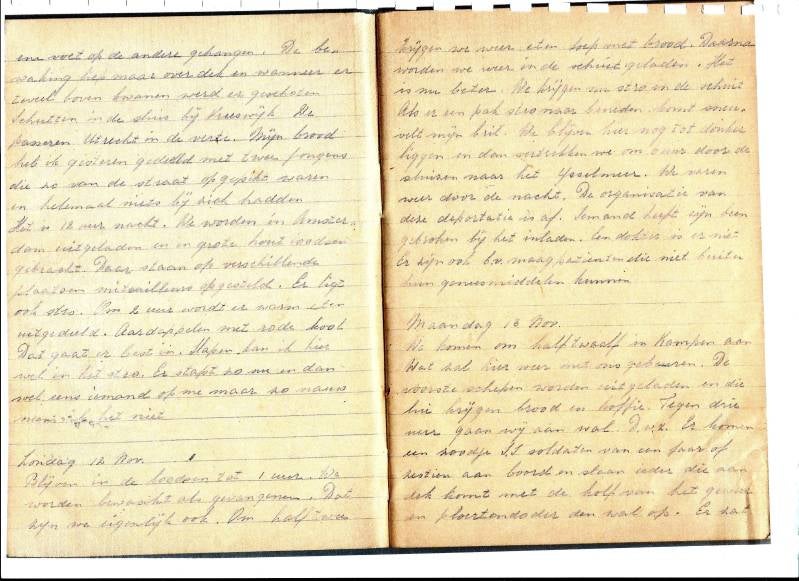 ene voet op de andere gehangen. De be-
waking liep maar over dek en wanneer er
teveel boven kwamen werd er geschoten
Schutten in de sluis bij Vreeswijk We
passeren Utrecht in de verte. Mijn brood
heb ik gisteren gedeeld met twee jongens
die zo van de straat opgepikt waren
en helemaal niets bij zich hadden
Het is 12 uur nacht. We worden in Amster-
dam uitgeladen en in grote hout loodsen
gebracht. Daar staan op verschillende
plaatsen mitrailleurs opgesteld. Er ligt
ook stro. Om 2 uur wordt er warm eten
uitgedeeld. Aardappelen met rode kool
Dat gaat er best in. Slapen kan ik hier
wel in het stro. Er stapt zo nu en dan
wel eens iemand op me maar zo nauw
neem ik het niet
Zondag 12 Nov.
Blijven in de loodsen tot 1 uur. We
worden bewaakt als gevangenen. Dat
zijn we eigenlijk ook. Om half twee
krijgen we weer eten soep met brood. Daarna
worden we weer in de schuit geladen. Het
is nu beter. We krijgen nu stro in de schuit
Als er een pak stro naar beneden komt sneu-
velt mijn bril. We blijven hier nog tot donker
liggen en dan vertrekken we om uur door de
sluizen naar het Ysselmeer. We varen
weer door de nacht. De organisatie van
deze deportatie is af. Iemand heeft zijn been
gebroken bij het inladen. Een dokter is er niet
Er zijn ook b.v. maagpatienten die niet buiten
hun geneesmiddelen kunnen
Maandag 13 Nov.
We komen om half twaalf in Kampen aan
Wat zal hier weer met ons gebeuren. De
voorste schepen worden uitgeladen en die
lui krijgen brood en koffie. Tegen drie
uur gaan wij aan wal. D.w.z. Er komen
een zoodje S.S. soldaten van een jaar of
zestien aan boord en slaan ieder die aan
dek komt met de kolf van het geweer
en ploertendoder den wal op. Er zat